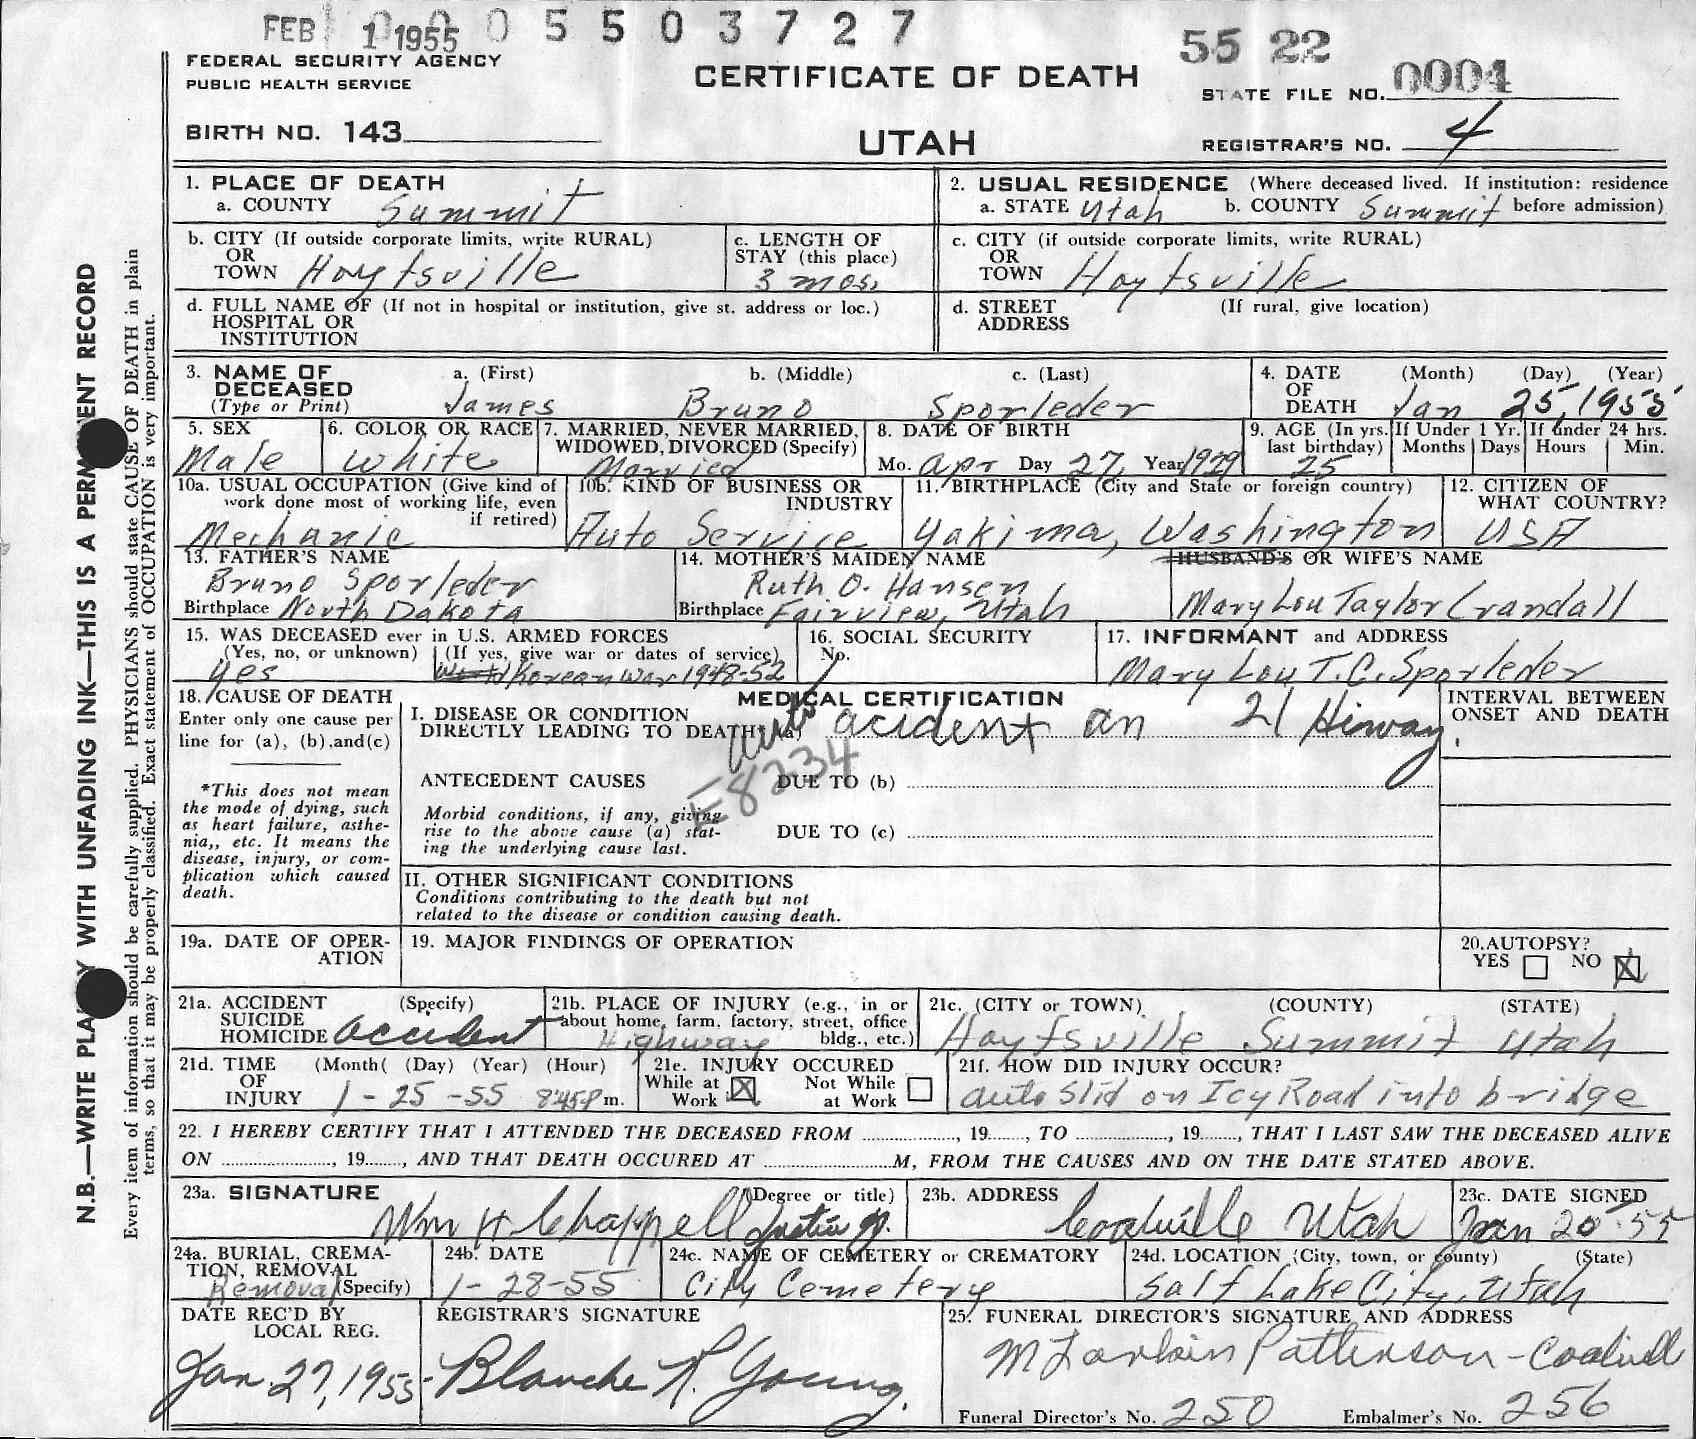 FEB 1 1955 0005503727
55 22
FEDERAL SECURITY AGENCY
PUBLIC HEALTH SERVICE
CERTIFICATE OF DEATH
STATE FILE NO. 0004
BIRTH NO. 143
UTAH
REGISTRAR'S NO. 4
N.B.—WRITE PLAINLY WITH UNFADING INK—THIS IS A PERMANENT RECORD
Every item of information should be carefully supplied. PHYSICIANS should state CAUSE OF DEATH in plain
terms, so that it may be properly classified. Exact statement of OCCUPATION is very important.
1. PLACE OF DEATH
a. COUNTY Summit
2. USUAL RESIDENCE (Where deceased lived. If institution: residence
a. STATE Utah b. COUNTY Summit before admission)
b. CITY (If outside corporate limits, write RURAL)
OR
TOWN Hoytsville
c. LENGTH OF
STAY (this place)
3 mos.
c. CITY (if outside corporate limits, write RURAL)
OR
TOWN Hoytsville
d. FULL NAME OF (If not in hospital or institution, give st. address or loc.)
HOSPITAL OR
INSTITUTION
d. STREET (If rural, give location)
ADDRESS
3. NAME OF a. (First) b. (Middle) c. (Last)
DECEASED
(Type or Print) James Bruno Sporleder
4. DATE (Month) (Day) (Year)
OF
DEATH Jan 25, 1955
5. SEX
Male
6. COLOR OR RACE
White
7. MARRIED, NEVER MARRIED,
WIDOWED, DIVORCED (Specify)
Married
8. DATE OF BIRTH
Mo. Apr Day 27, Year 1929
9. AGE (In yrs. If Under 1 Yr. If under 24 hrs.
last birthday) Months Days Hours Min.
25
10a. USUAL OCCUPATION (Give kind of
work done most of working life, even
if retired)
Mechanic
10b. KIND OF BUSINESS OR
INDUSTRY
Auto Service
11. BIRTHPLACE (City and State or foreign country)
Yakima, Washington
12. CITIZEN OF
WHAT COUNTRY?
USA
13. FATHER'S NAME
Bruno Sporleder
Birthplace North Dakota
14. MOTHER'S MAIDEN NAME
Ruth O. Hansen
Birthplace Fairview, Utah
HUSBAND'S OR WIFE'S NAME
Mary Lou Taylor Crandall
15. WAS DECEASED ever in U.S. ARMED FORCES
(Yes, no, or unknown) (If yes, give war or dates of service)
Yes Korean War 1948-52
16. SOCIAL SECURITY
No.
17. INFORMANT and ADDRESS
Mary Lou T.C. Sporleder
18. CAUSE OF DEATH
Enter only one cause per
line for (a), (b).and(c)
*This does not mean
the mode of dying, such
as heart failure, asthe-
nia,, etc. It means the
disease, injury, or com-
plication which caused
death.
MEDICAL CERTIFICATION
I. DISEASE OR CONDITION
DIRECTLY LEADING TO DEATH* (a) auto acident an 21 Hiway.
E8234
ANTECEDENT CAUSES DUE TO (b)
Morbid conditions, if any, giving
rise to the above cause (a) stat-
ing the underlying cause last.
DUE TO (c)
INTERVAL BETWEEN
ONSET AND DEATH
II. OTHER SIGNIFICANT CONDITIONS
Conditions contributing to the death but not
related to the disease or condition causing death.
19a. DATE OF OPER-
ATION
19. MAJOR FINDINGS OF OPERATION
20.AUTOPSY?
YES NO X
21a. ACCIDENT (Specify)
SUICIDE
HOMICIDE accident
21b. PLACE OF INJURY (e.g., in or
about home, farm, factory, street, office
bldg., etc.)
Highway
21c. (CITY or TOWN) (COUNTY) (STATE)
Hoytsville Summit Utah
21d. TIME (Month( (Day) (Year) (Hour)
OF
INJURY 1-25-55 8:45P m.
21e. INJURY OCCURED
While at X Not While
Work at Work
21f. HOW DID INJURY OCCUR?
auto slid on Icy Road into bridge
22. I HEREBY CERTIFY THAT I ATTENDED THE DECEASED FROM , 19 , TO , 19 , THAT I LAST SAW THE DECEASED ALIVE
ON , 19 , AND THAT DEATH OCCURED AT M, FROM THE CAUSES AND ON THE DATE STATED ABOVE.
23a. SIGNATURE (Degree or title)
Wm H Chappell
23b. ADDRESS
Coalville Utah
23c. DATE SIGNED
Jan 20 55
24a. BURIAL, CREMA-
TION, REMOVAL
Removal (Specify)
24b. DATE
1-28-55
24c. NAME OF CEMETERY or CREMATORY
City Cemetery
24d. LOCATION (City, town, or county) (State)
Salt Lake City, Utah
DATE REC'D BY
LOCAL REG.
Jan. 27, 1955
REGISTRAR'S SIGNATURE
Blanche R. Young.
25. FUNERAL DIRECTOR'S SIGNATURE AND ADDRESS
M Larkin Patterson - Coalvill
Funeral Director's No. 250 Embalmer's No. 256